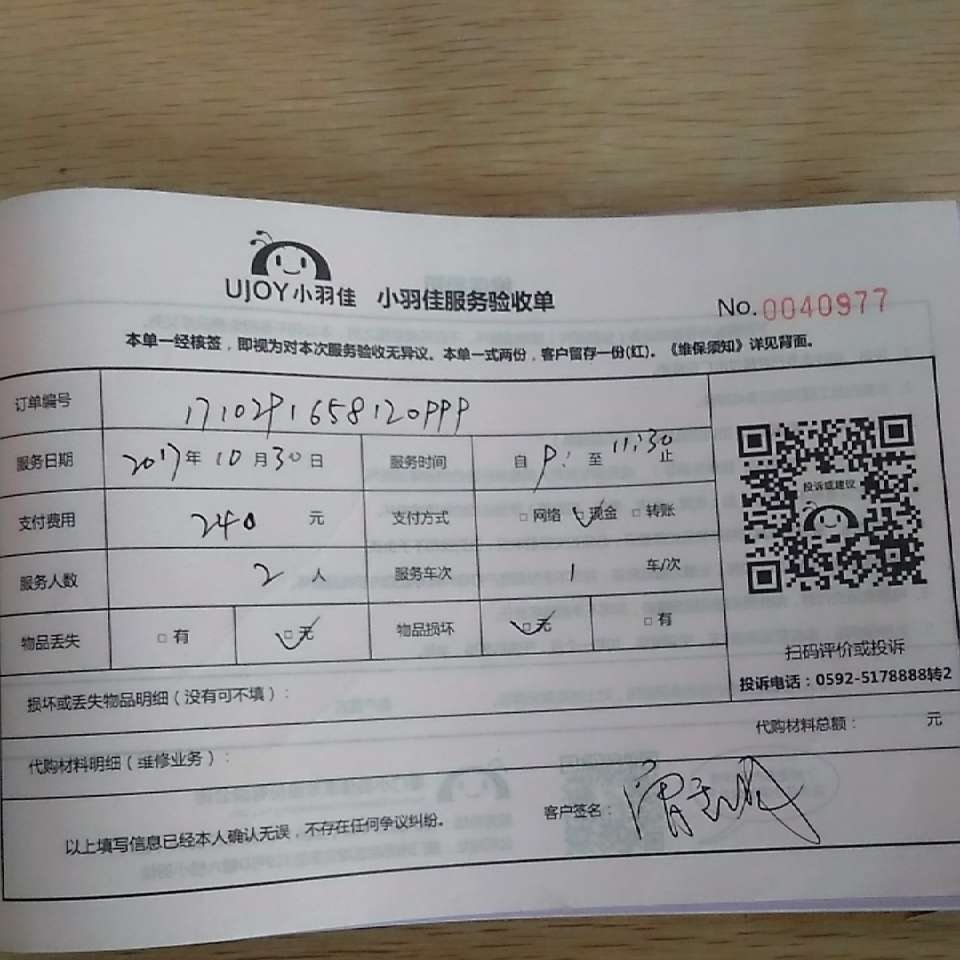 UJOY小羽佳 小羽佳服务验收单 No.0040977
本单一经核签，即视为对本次服务验收无异议。本单一式两份，客户留存一份(红)。《维保须知》详见背面。
订单编号 1710291658120999
服务日期 2017年10月30日 服务时间 自 9: 至 11:30 止
支付费用 240 元 支付方式 □网络 □现金 □转账
服务人数 2 人 服务车次 1 车/次
物品丢失 □有 □无 物品损坏 □无 □有
投诉或建议
扫码评价或投诉
投诉电话：0592-5178888转2
损坏或丢失物品明细（没有可不填）：
代购材料总额： 元
代购材料明细（维修业务）：
以上填写信息已经本人确认无误，不存在任何争议纠纷。
客户签名：